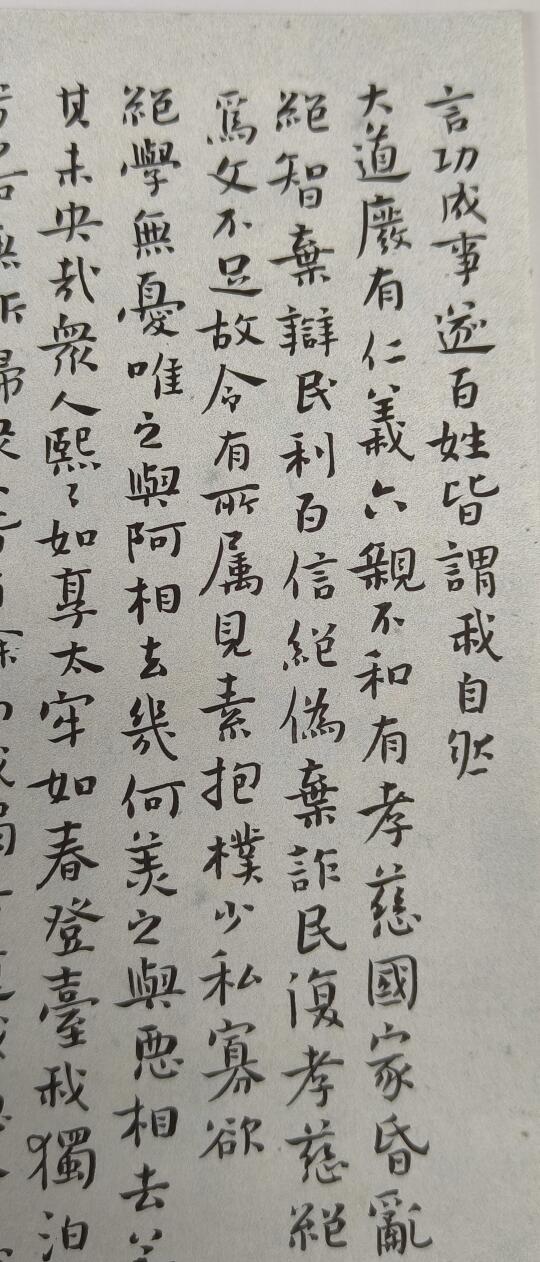 言功成事遂百姓皆謂我自然
大道廢有仁義六親不和有孝慈國家昏亂
絕智棄辯民利百信絕偽棄詐民復孝慈絕
為文不足故令有所属見素抱樸少私寡欲
絕學無憂唯之與阿相去幾何美之與惡相去
其未央哉眾人熙々如享太牢如春登臺我獨泊